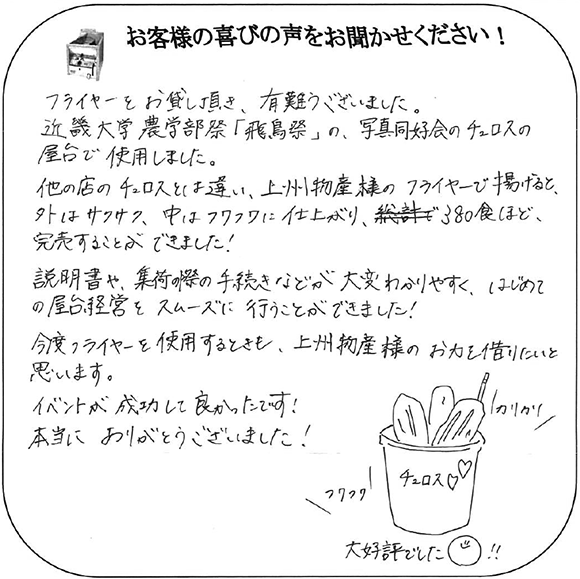 お客様の喜びの声をお聞かせください！
フライヤーをお貸し頂き、有難うございました。
近畿大学農学部祭「飛鳥祭」の、写真同好会のチュロスの
屋台で使用しました。
他の店のチュロスとは違い、上州物産様のフライヤーで揚げると、
外はサクサク、中はフワフワに仕上がり、総計で380食ほど、
完売することができました！
説明書や、集荷の際の手続きなどが大変わかりやすく、はじめて
の屋台経営をスムーズに行うことができました！
今度フライヤーを使用するときも、上州物産様のお力を借りたいと
思います。
イベントが成功して良かったです！
本当にありがとうございました！
カリカリ
チュロス
フワフワ
大好評でした!!